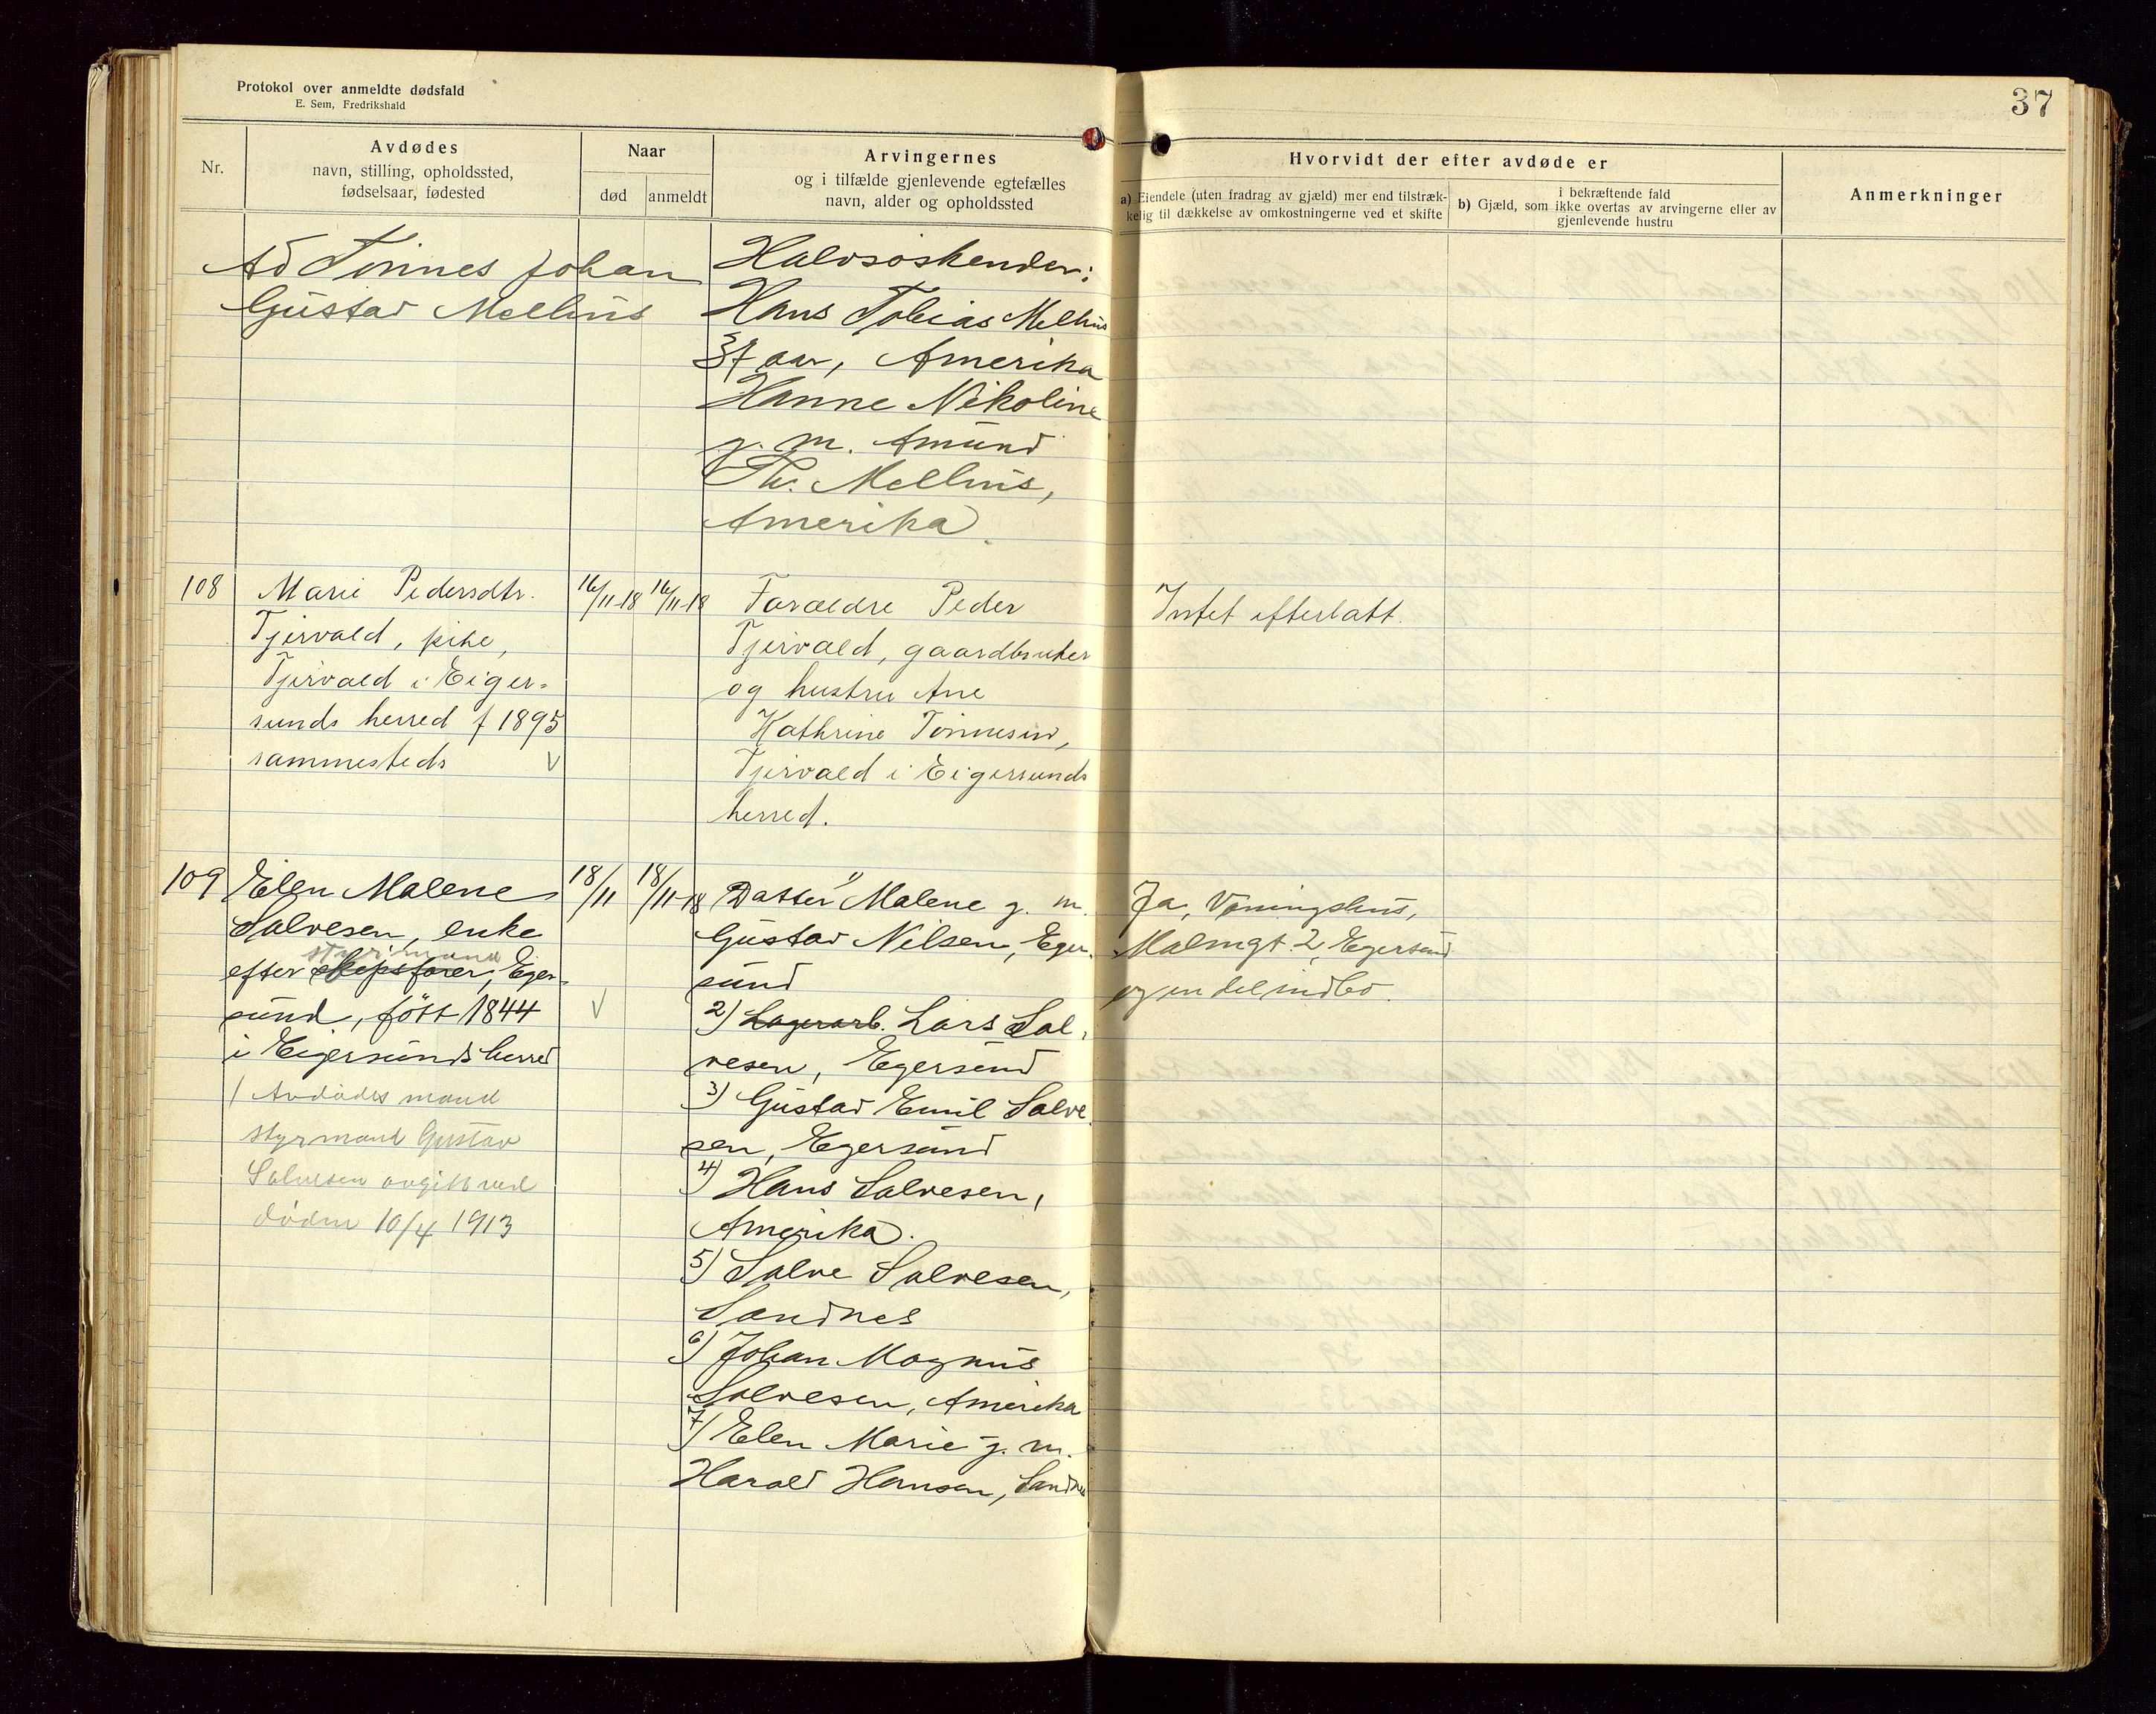 Protokol over anmeldte dødsfald
E. Sem, Fredrikshald
37
Nr.
Avdødes
navn, stilling, opholdssted,
fødselsaar, fødested
Naar
død
anmeldt
Arvingernes
og i tilfælde gjenlevende egtefælles
navn, alder og opholdssted
Hvorvidt der efter avdøde er
a) Eiendele (uten fradrag av gjæld) mer end tilstræk-
kelig til dækkelse av omkostningerne ved et skifte
i bekræftende fald
b) Gjæld, som ikke overtas av arvingerne eller av
gjenlevende hustru
Anmerkninger
Ad Tönnes Johan
Gustav Mellius
Halvsöskender:
Hans Tobias Mellius
37 aar, Amerika
Hanne Nikoline
g. m. Amund
Th. Mellius,
Amerika.
108
Marie Pedersdtr.
Tjørvald, pike,
Tjørvald i Eiger-
sunds herred f 1895
sammesteds
16/11-18
16/11-18
Forældre Peder
Tjørvald, gaardbruker
og hustru Ane
Kathrine Tönnesen,
Tjørvald i Eigersunds
herred.
Intet efterlatt.
109
Elen Malene
Salvesen, enke
styrmand
efter skipsförer, Eger-
sund, född 1844
i Eigersunds herred
1) Avdødes mand
styrmand Gustav
Salvesen avgik ved
døden 10/4 1913
18/11
18/11-18
Datter 1) Malene g. m.
Gustav Nilsen, Eger-
sund
2) Lagerarb. Lars Sal-
vesen, Egersund
3) Gustav Emil Salve-
sen, Egersund
4) Hans Salvesen,
Amerika.
5) Salve Salvesen,
Sandnes
6) Johan Magnus
Salvesen, Amerika
7) Elen Marie g. m.
Harald Hansen, Sandnes
Ja, Våningshus,
Malmgt. 2, Egersund
og en del indbo.